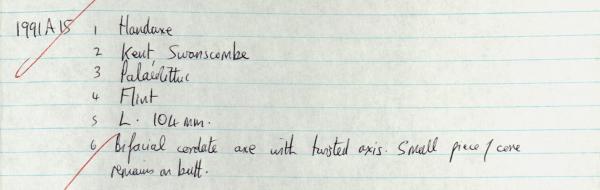 1991A15 1 Handaxe
2 Kent Swanscombe
3 Palaeolithic
4 Flint
5 L. 104 mm.
6 Bifacial cordate axe with twisted axis. Small piece / core
remains on butt.